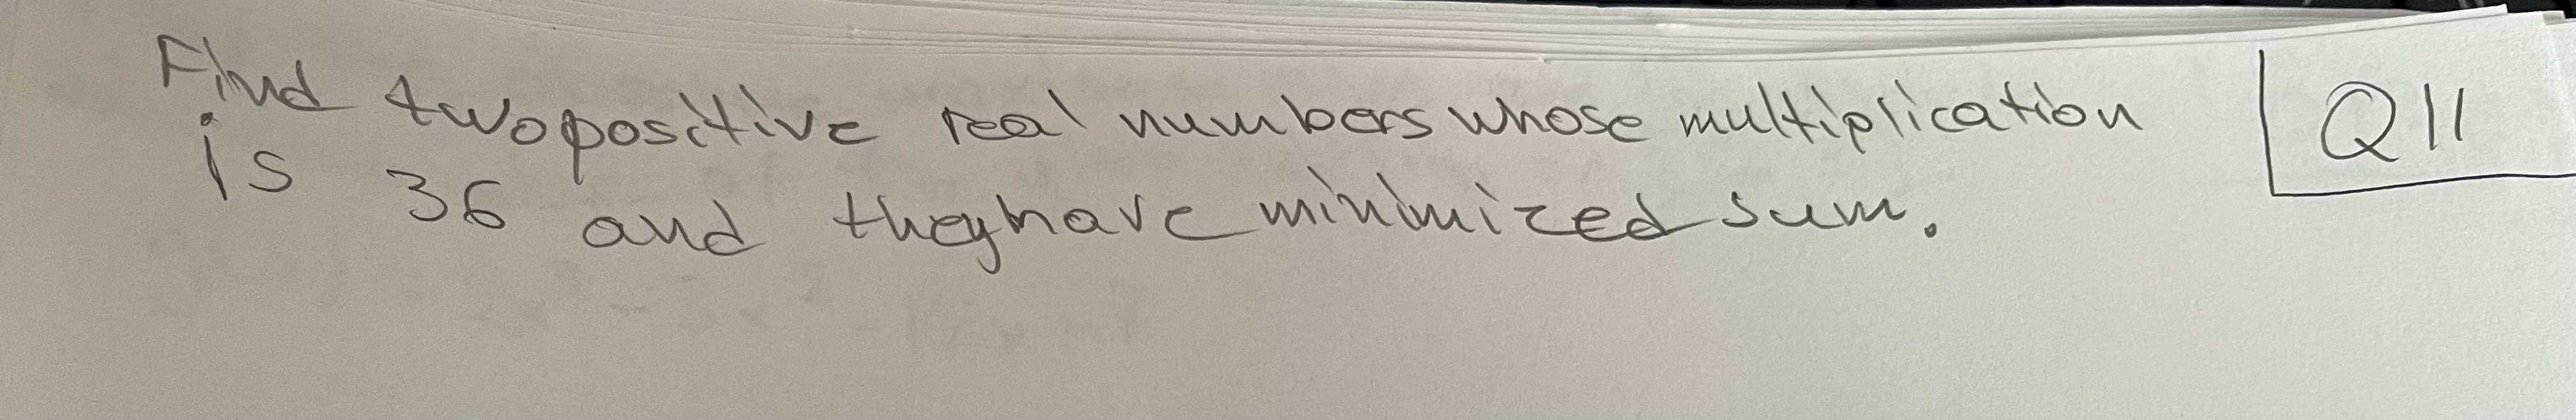 Find two positive real numbers whose multiplication
is 36 and they have minimized sum.
Q11